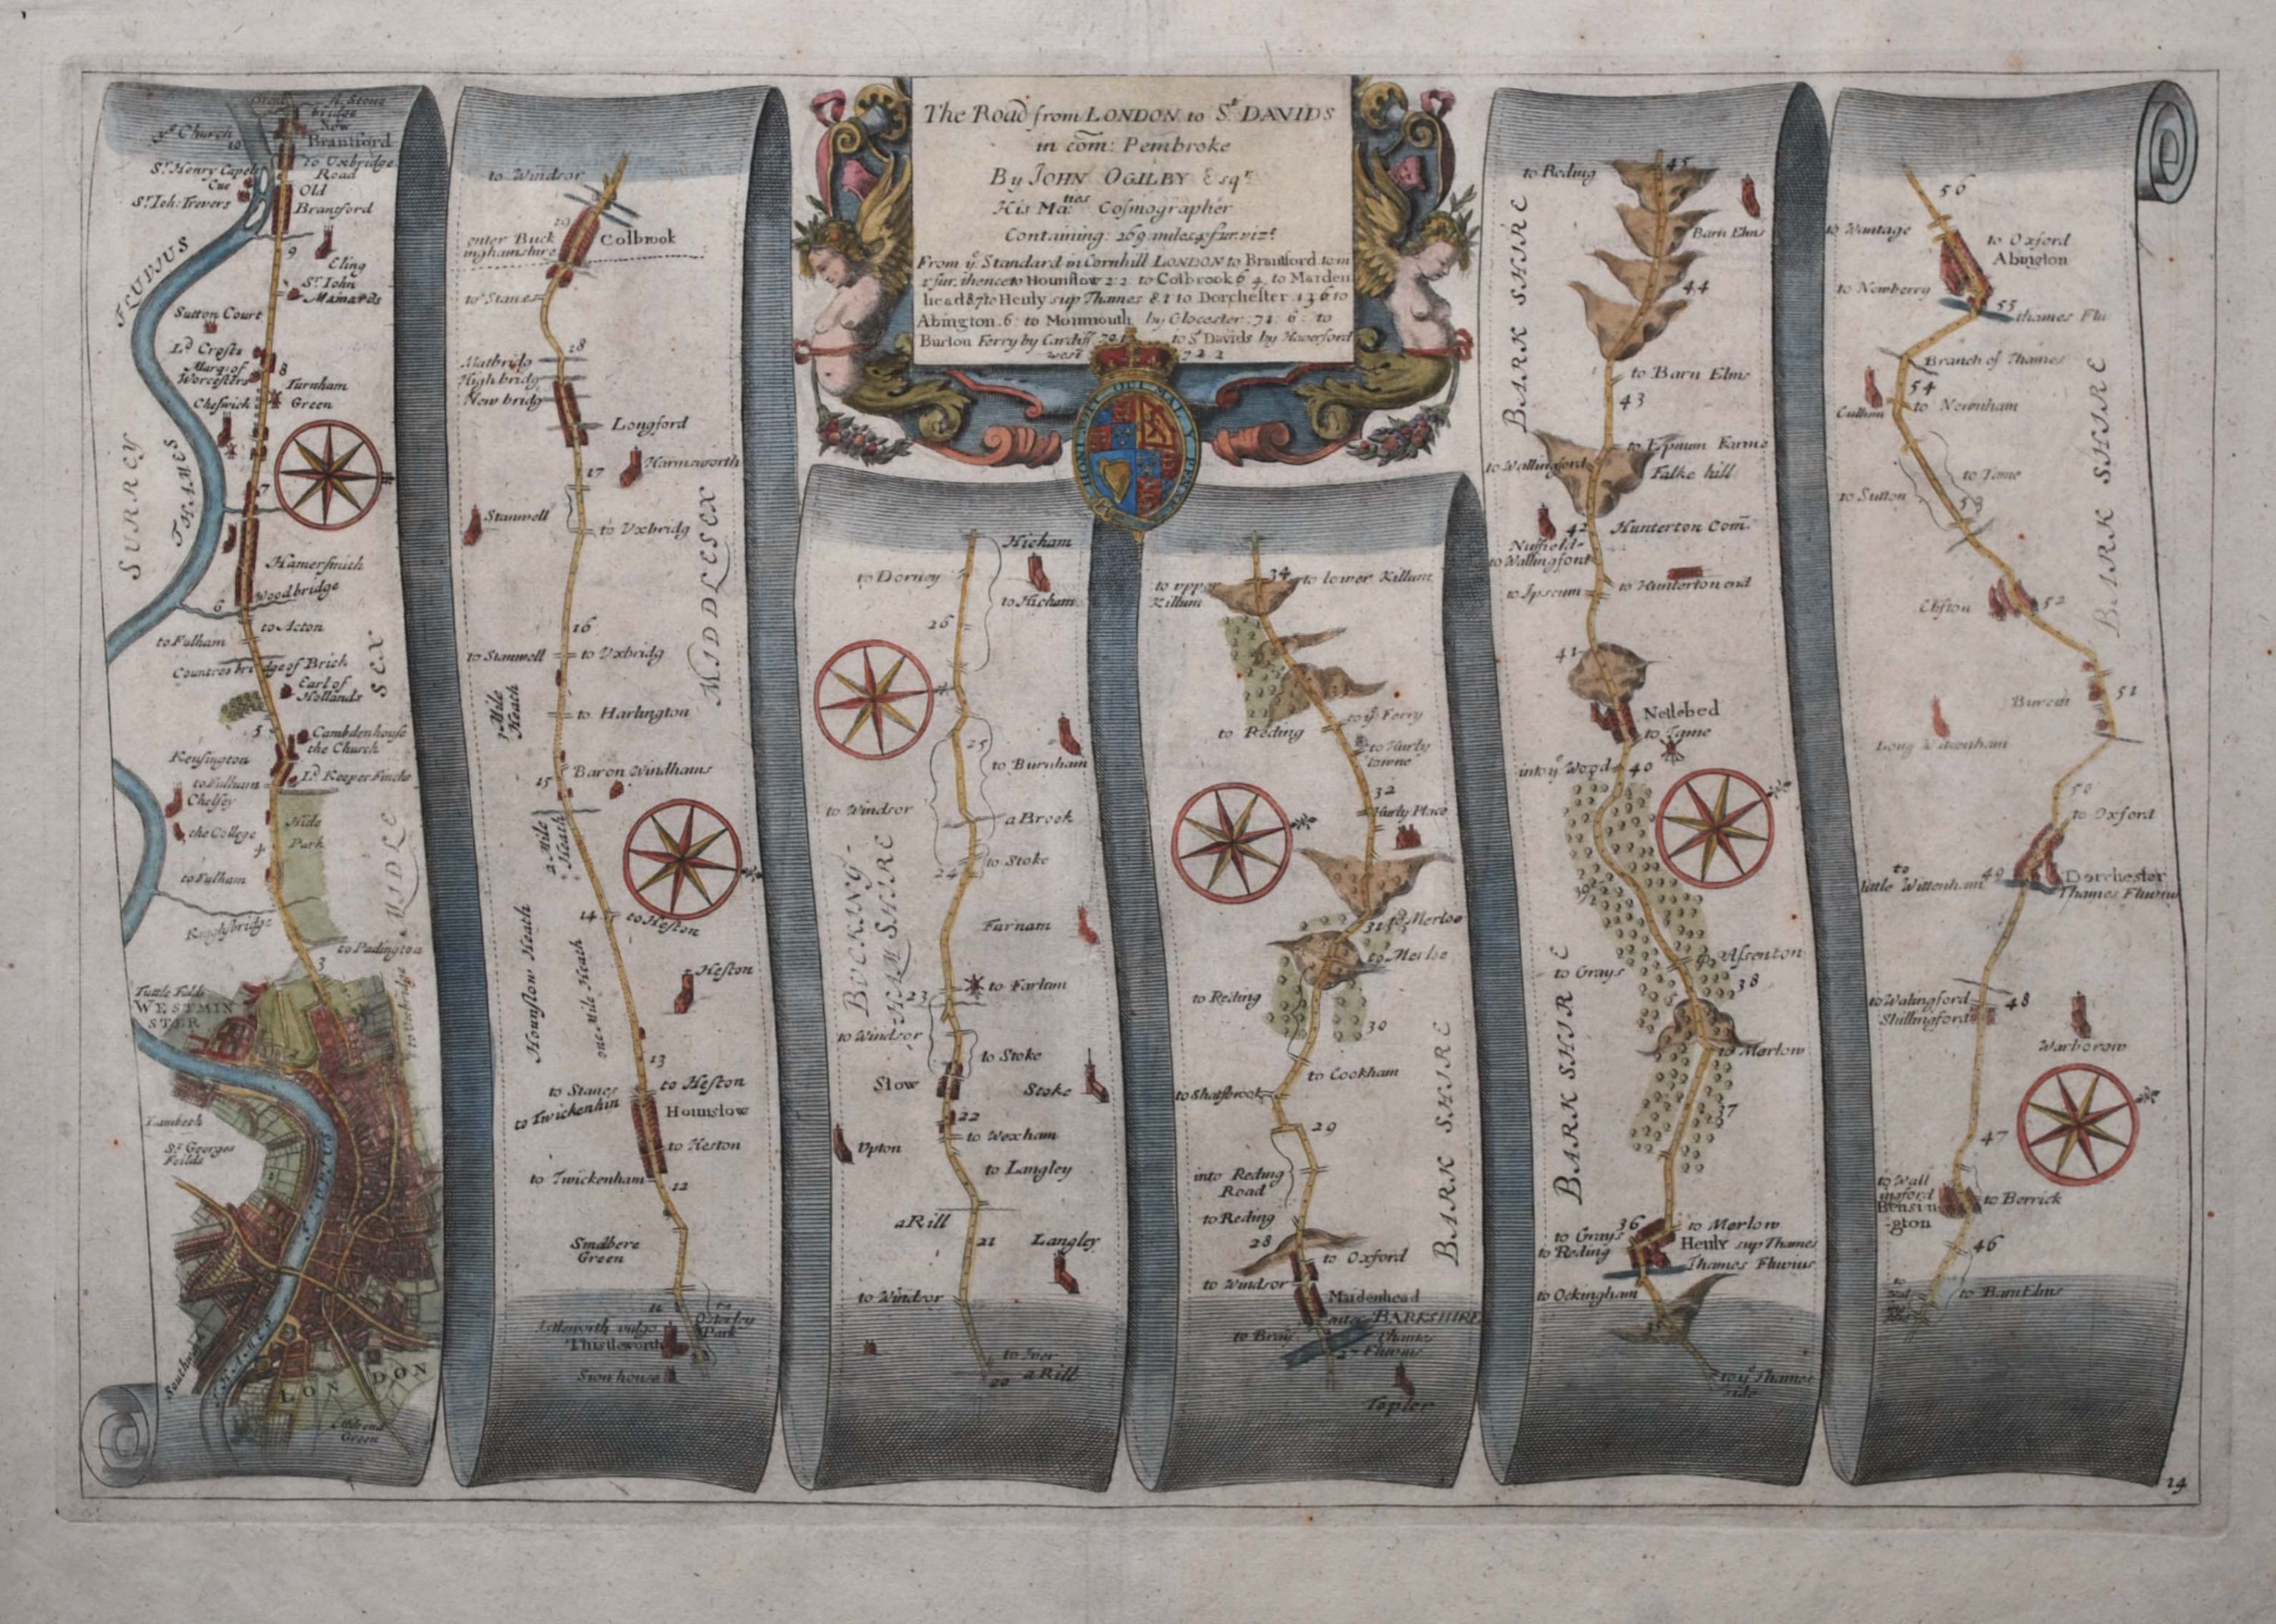 The Road from LONDON to St DAVIDS
in com: Pembroke
By JOHN OGILBY Esqr
His Maties Cosmographer
Containing 269 miles 4 fur. vizt
From ye Standard in Cornhill LONDON to Brantford 10 m
1 fur. thence to Hounslow 2:2 to Colbrook 6 4 to Maiden
head 8 7 to Henly sup Thames 8.1 to Dorchester 13 6 to
Abington 6: to Monmouth by Glocester: 71: 6: to
Burton Ferry by Cardiff
to St Davids by Haverford
west 72 2
A Stone
bridge
New
Brantford
Church
10
to Uxbridge
Road
Sr Henry Capels
Cue
Old
Brantford
Sr Ioh: Trevers
FLUVIUS
9
Eling
Sr Iohn
Mainards
Sutton Court
Ld Crofts
Marq: of
Worcesters
8
Turnham
Green
Cheswick
SURREY
THAMES
7
Hamersmith
Woodbridge
6
to Acton
to Fulham
Countres bridge of Brick
Earl of
Hollands
SEX
5
Cambdenhouse
the Church
Kensington
Ld Keeper Finche
to Fulham
Chelsey
the College
Hide
Park
4
to Fulham
MIDLE
Knightsbridge
to Padington
3
to Uxbridge
Tuttle Feilds
WESTMIN
STER
Lambeth
St Georges
Feilds
FLUVIUS
THAMES
Southwark
LONDON
Green
to Windsor
19
enter Buck
inghamshire
Colbrook
to Stanes
18
Matbridg
High bridg
New bridg
Longford
17
Harmsworth
Stanwell
to Uxbridg
MIDDLESEX
16
to Stanwell
to Uxbridg
3 Mile
Heath
to Harlington
15
Baron Windhams
2 Mile
Heath
14
to Heston
Hounslow Heath
one Mile Heath
Heston
13
to Stanes
to Heston
to Twickenhm
Hounslow
to Heston
to Twickenham
12
Smalbere
Green
11
to
Osterley
Park
Istleworth vulgo
Thistleworth
Sion house
Hicham
to Dorney
to Hicham
26
25
to Burnham
to Windsor
a Brook
24
to Stoke
BUCKING-
HAMSHIRE
Farnam
to Farlam
23
to Windsor
to Stoke
Slow
Stoke
22
to Wexham
Upton
to Langley
a Rill
21
Langley
to Windsor
to Iver
20
a Rill
34
to lower Killum
to upper
Killum
to ye Ferry
to Reding
to Hurly
towne
32
Hurly Place
31
to Merloe
to Merloe
to Reding
30
to Cookham
to Shatsbrook
29
into Reding
Road
to Reding
28
to Oxford
to Windsor
Maidenhead
enter BARKSHIRE
Thames
Fluvius
to Bray
27
Topler
BARKSHIRE
45
to Reding
Barn Elms
44
to Barn Elms
43
BARKSHIRE
to Wallingford
Falke hill
42
Hunterton Com
Nuffield
to Wallingford
to Ipscum
to Hunterton end
41
Nettlebed
to Tame
into ye Wood
40
39
Assenton
to Grays
38
to Marlow
37
BARKSHIRE
36
to Grays
to Reding
to Merlow
Henly sup Thames
Thames Fluvius
to Ockingham
35
to ye Thames
side
56
to Wantage
to Oxford
Abington
to Newberry
55
Thames Flu:
Branch of Thames
54
Culham
to Newnham
to Tame
to Sutton
53
BARKSHIRE
Clifton
52
51
Burcut
Long Witenham
50
to Oxford
to
little Wittenham
49
Dorchester
Thames Fluvius
to Walingford
48
Shillingford
Warborow
47
to Wall
ingford
Bensin
-gton
to Berrick
46
to Barn Elms
14